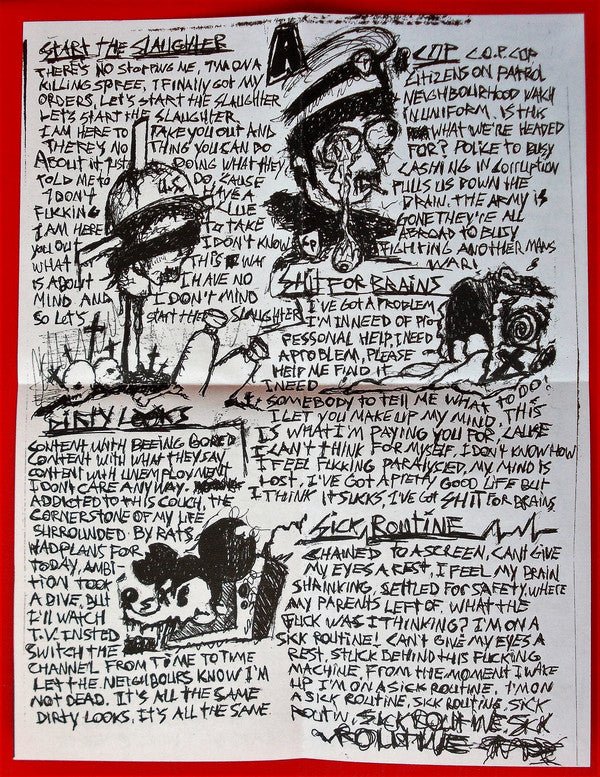 START THE SLAUGHTER
THERE'S NO STOPPING ME, I'M ON A
KILLING SPREE, I FINALLY GOT MY
ORDERS, LET'S START THE SLAUGHTER
LET'S START THE SLAUGHTER
I AM HERE TO TAKE YOU OUT AND
THERE'S NO THING YOU CAN DO
ABOUT IT JUST DOING WHAT THEY
TOLD ME TO DO, CAUSE
I DON'T HAVE A
FUCKING CLUE
I AM HERE TO TAKE
YOU OUT I DON'T KNOW
WHAT THIS WAR
IS ABOUT I HAVE NO
MIND AND I DON'T MIND
SO LET'S START THE SLAUGHTER
U.S.
A
COP C.O.P. COP
CITIZENS ON PATROL
NEIGHBOURHOOD WATCH
IN UNIFORM. IS THIS
WHAT WE'RE HEADED
FOR? POLICE TO BUSY
CASHING IN CORRUPTION
PULLS US DOWN THE
DRAIN. THE ARMY IS
GONE THEY'RE ALL
ABROAD TO BUSY
FIGHTING ANOTHER MANS
WAR!
SHIT FOR BRAINS
I'VE GOT A PROBLEM
I'M IN NEED OF PRO
FESSONAL HELP, I NEED
A PROBLEM, PLEASE
HELP ME FIND IT
I NEED
SOMEBODY TO TELL ME WHAT TO DO?
I LET YOU MAKE UP MY MIND, THIS
IS WHAT I'M PAYING YOU FOR, CAUSE
I CAN'T THINK FOR MYSELF, I DON'T KNOW HOW
I FEEL FUCKING PARALYSED, MY MIND IS
LOST, I'VE GOT A PRETTY GOOD LIFE BUT
I THINK IT SUCKS, I'VE GOT SHIT FOR BRAINS
DIRTY LOOKS
CONTENT WITH BEEING BORED
CONTENT WITH WHAT THEY SAY
CONTENT WITH UNEMPLOYMENT
I DON'T CARE ANYWAY.
ADDICTED TO THIS COUCH, THE
CORNERSTONE OF MY LIFE
SURROUNDED BY RATS,
HAD PLANS FOR
TODAY, AMBI-
TION TOOK
A DIVE, BUT
I'LL WATCH
T.V. INSTED
SWITCH THE
CHANNEL FROM TIME TO TIME
LET THE NEIGHBOURS KNOW I'M
NOT DEAD. IT'S ALL THE SAME
DIRTY LOOKS, IT'S ALL THE SAME
SICK ROUTINE
CHAINED TO A SCREEN, CAN'T GIVE
MY EYES A REST, I FEEL MY BRAIN
SHRINKING, SETTLED FOR SAFETY, WHERE
MY PARENTS LEFT OF. WHAT THE
FUCK WAS I THINKING? I'M ON A
SICK ROUTINE! CAN'T GIVE MY EYES A
REST, STUCK BEHIND THIS FUCKING
MACHINE, FROM THE MOMENT I WAKE
UP I'M ON A SICK ROUTINE, I'M ON
A SICK ROUTINE, SICK ROUTINE, SICK
ROUTIN, SICK ROUTINE SICK
ROUTINE